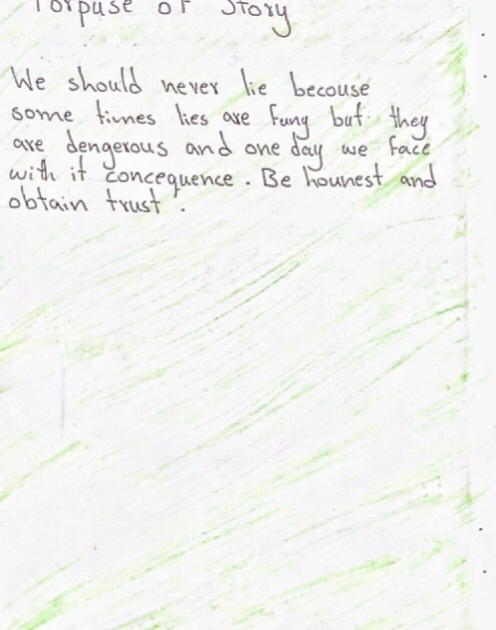 Porpuse of Story
We should never lie becouse
some times lies are funy but they
are dengerous and one day we face
with it concequence. Be hounest and
obtain trust.